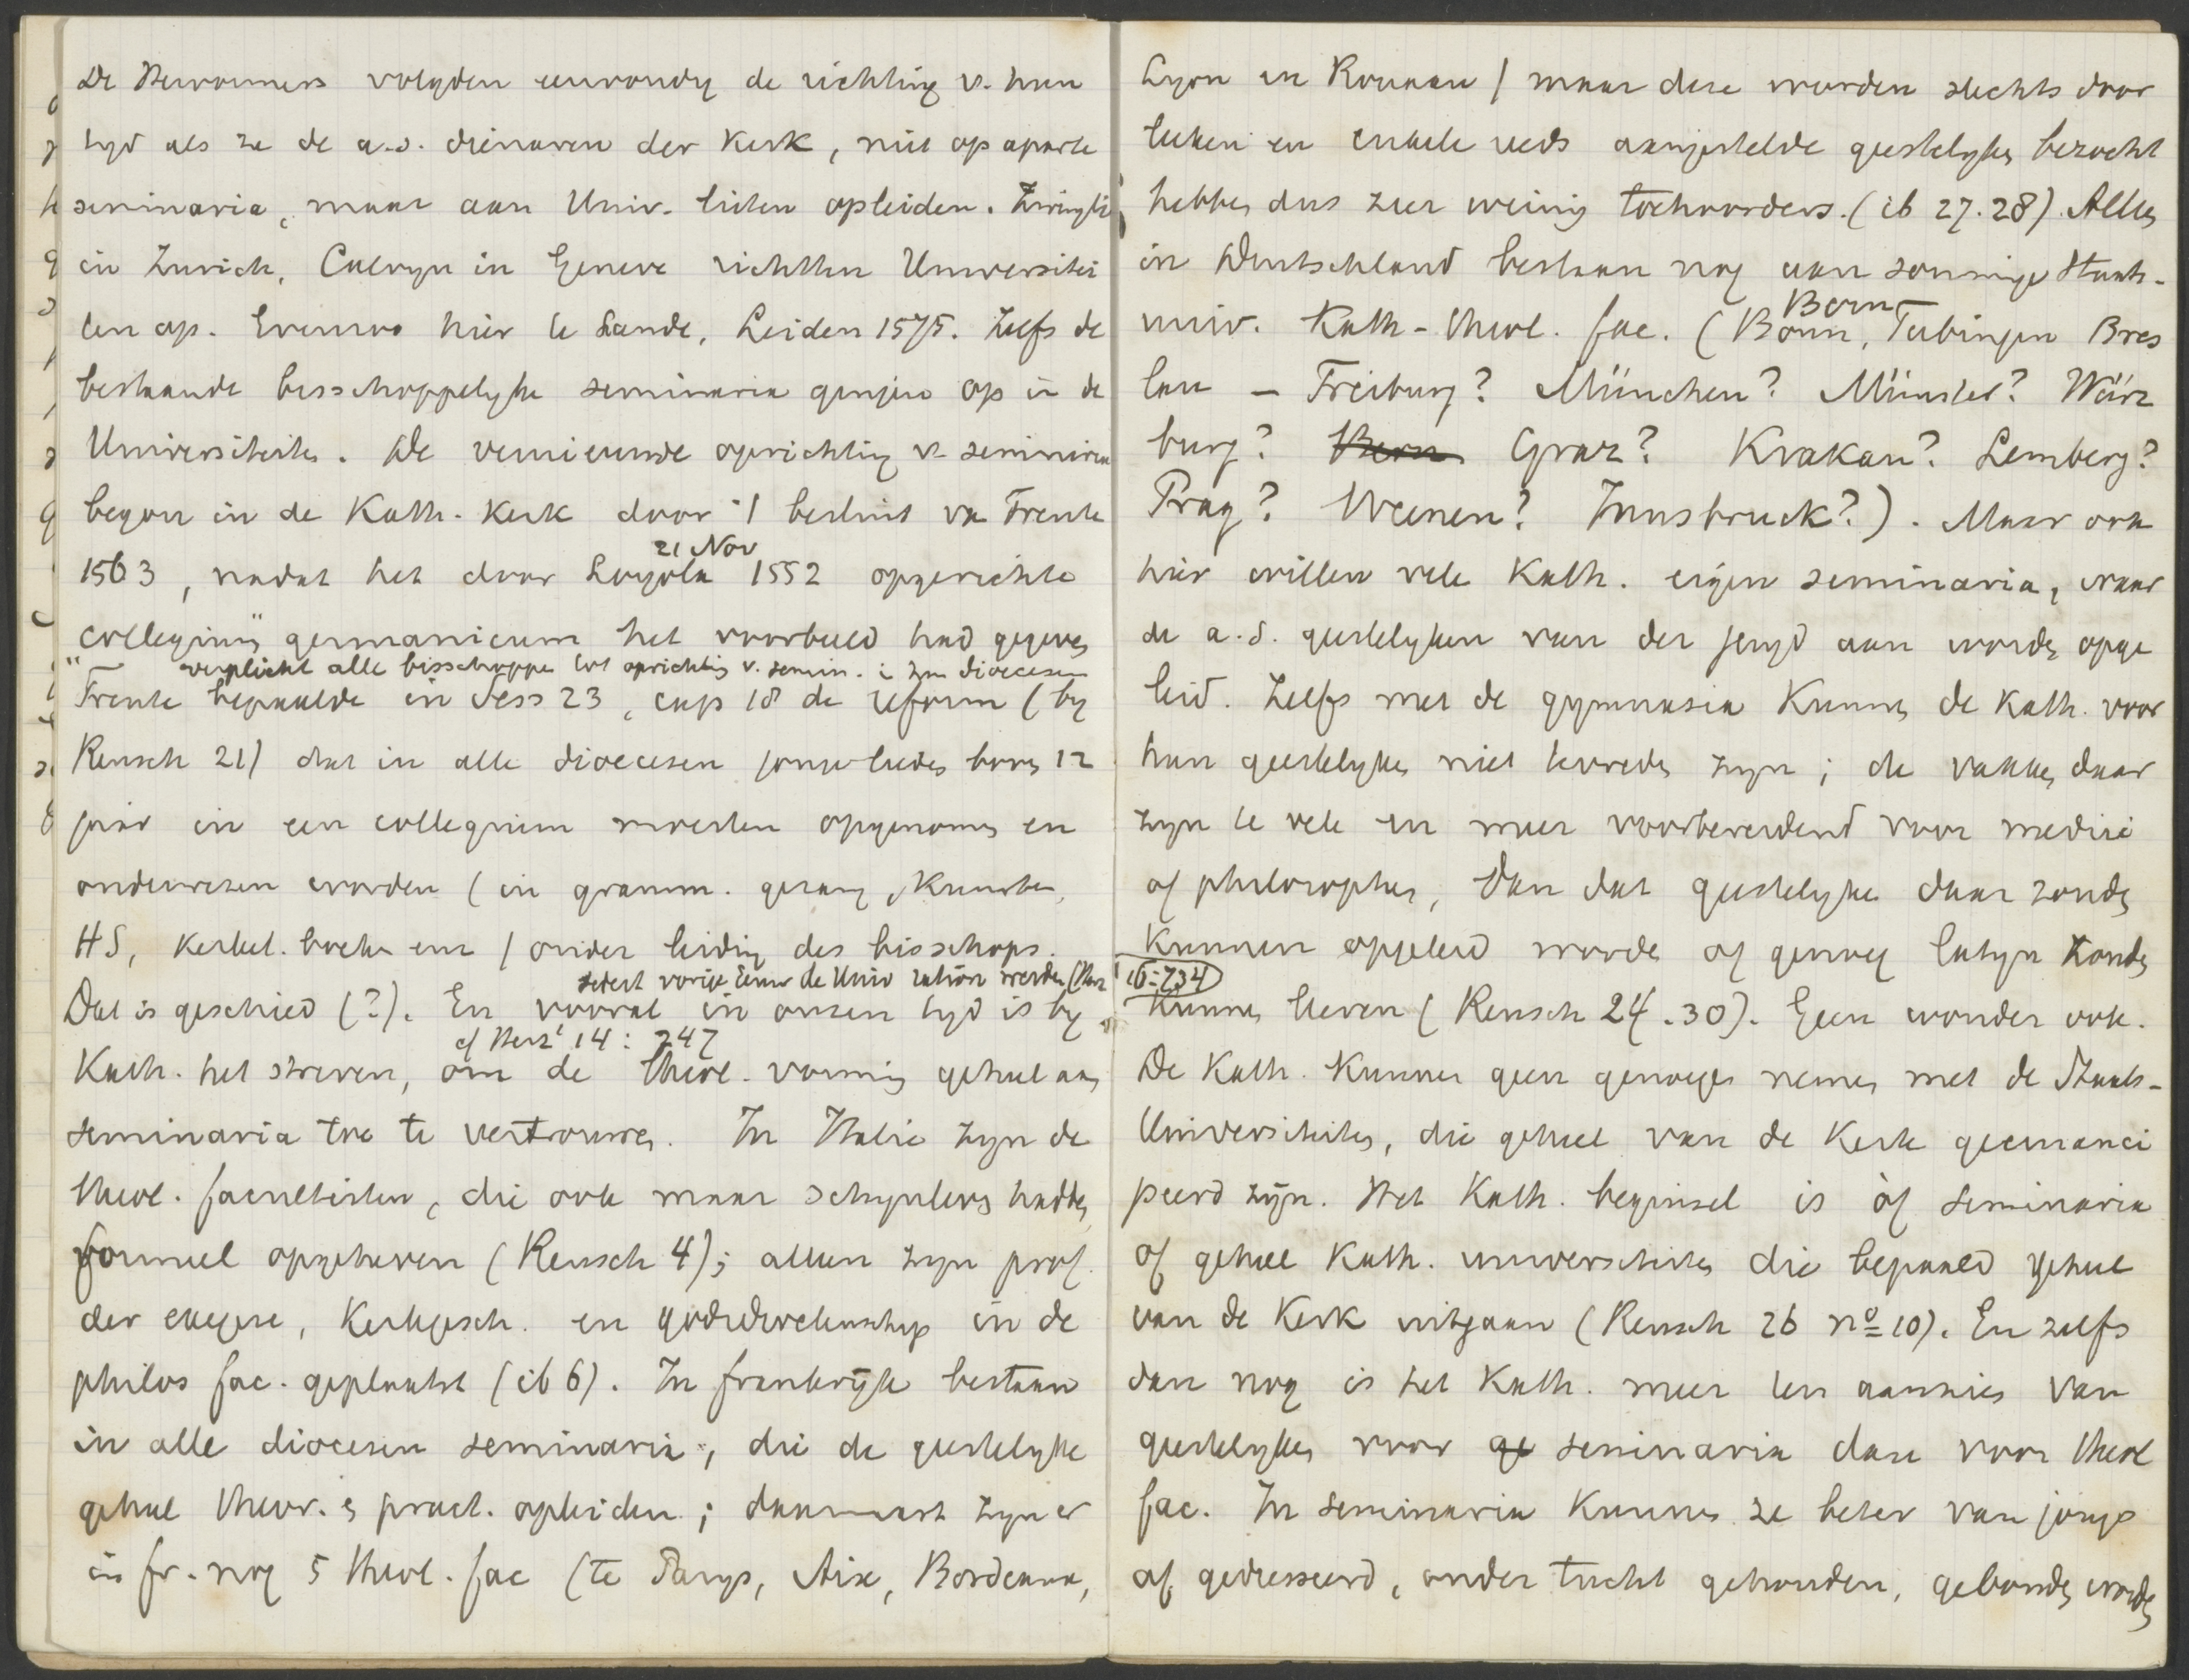 De Hervormers volgden eenvoudig de richting v. hun
tyd als ze de a.s. dienaren der Kerk, niet op aparte
seminaria, maar aan Univ. lieten opleiden. Zwingli
in Zurich, Calvyn in Geneve richtten Universitei
ten op. Evenzoo hier te lande, Leiden 1575. Zelfs de
bestaande bisschoppelyke seminaria gingen op in de
Universiteiten. De vernieuwde oprichting v. seminaria
begon in de Kath. Kerk door 't besluit van Trente
21 Nov
1563, nadat het door Loyola 1552 opgerichte
"collegium germanicum" het voorbeeld had gegeven
verplicht alle bisschoppen tot oprichting v. semin. in hun dioecesen
Trente bepaalde in Sess 23, cap 18 de reform (by
Reusch 21) dat in alle dioecesen jongelieden boven 12
jaar in een collegium moesten opgenomen en
onderwezen worden (in gramm. gezang, Kunsten,
HS, Kerkel. boeken enz) onder leiding des bisschops.
sedert vorige Eeuw de Univ
Dat is geschied (?). En vooral in onzen tyd is by
cf Herz² 14:247
Kath. het streven, om de theol. vorming geheel aan
seminaria toe te vertrouwen. In Italie zyn de
theol. faculteiten, die ook maar schynlevs hadden,
formeel opgeheven (Reusch 4); alleen zyn prof.
der exegese, Kerkgesch. en godsdwetenschap in de
philos fac. geplaatst (ib 6). In frankrijk bestaan
in alle diocesen seminaria, die de geestelyke
geheel theor. & pract. opleiden; daarnaast zyn er
in fr. nog 5 theol. fac (te Parys, Aix, Bordeaux,
Lyon en Rouaan) maar deze worden slechts door
leeken en enkele reeds aangestelde geestelyken bezocht
hebben dus zeer weinig toehoorders. (ib 27.28). Alleen
in Deutschland bestaan nog aan sommige Staats-
Bern
univ. Kath-theol. fac. (Bonn, Tubingen Bres
lau – Freiburg? München? Münster? Würz
burg? Bern Graz? Krakau? Lemberg?
Prag? Weenen? Innsbruck?). Maar ook
hier willen vele Kath. eigen seminaria, waar
de a.s. geestelyken van der jeugd aan worden opge
leid. Zelfs met de gymnasia Kunnen de Kath. voor
hun geestelyken niet tevreden zyn; de vakken daar
zyn te vele en meer voorbereidend voor medici
of philosophen, dan dat geestelyke daar zouden
Kunnen opgeleid worde of genoeg latyn zouden
ib:234
Kunnen leeren (Reusch 24.30). Geen wonder ook.
De Kath. Kunnen geen genoegen nemen met de Staats-
Universiteiten, die geheel van de Kerk geemanci
peerd zijn. Het Kath. beginsel is òf seminaria
of geheel Kath. universiteiten die bepaald geheel
van de Kerk uitgaan (Reusch 26 nº 10). En zelfs
dan nog is het Kath. meer ten aanzien van
geestelyken voor ge seminaria dan voor theol
fac. In seminaria Kunnen ze beter van jongs
af gedresseerd, onder tucht gehouden, gebonden worden